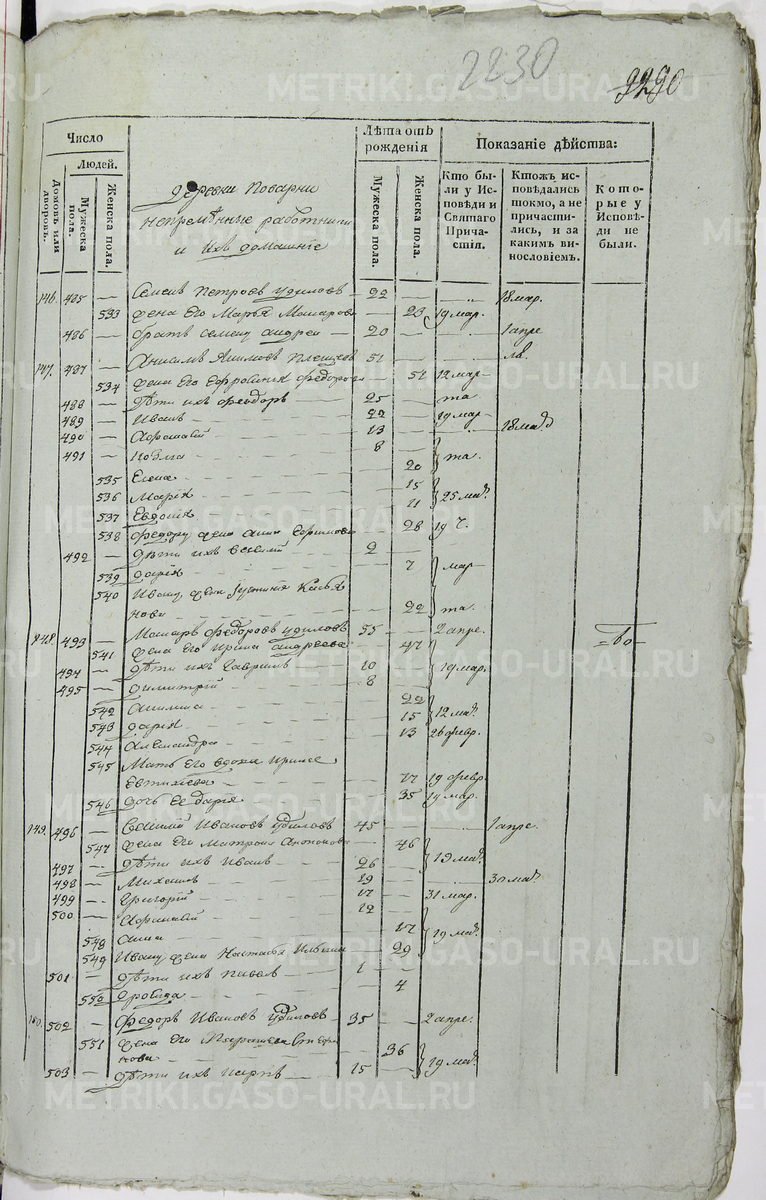 2230
9290
Число
Людей.
Домовъ или дворовъ.
Мужеска пола.
Женска пола.
деревни Поварни
непремѣнные работники
и ихъ домашніе
Лѣта отъ рожденія
Мужеска пола.
Женска пола.
Показаніе дѣйства:
Кто былъ у Исповѣди и Святаго Причастія.
Ктожъ исповѣдались токмо, а не причастились, и за какимъ винословіемъ.
Которые у Исповѣди не были.
146. 485 — Семенъ Петровъ Удиловъ — 22 18 мар.
533 жена Его Марья Макарова 23 19 мар.
486 — братъ семену андрей — 20 1 апре
147. 487 — Анисимъ Акимовъ 51
534 жена Его Ефросинья федорова 51 12 мар
488 — дѣти ихъ феодоръ 25 та
489 — Иванъ 22 19 мар
490 — Афанасій 13 18 мар
491 — 8 та.
20
535 Елена
536 Марія 15
537 Евдокія 11 25 мар.
538 федору жена анна Ефимова 28 19 ч.
492 — дѣти ихъ Василій 2
539 дарія 7 мар
540 Ивану жена
нова 22 та.
148. 493 — Макаръ федоровъ Удиловъ 55 2 апре.
541 жена Его Ирина андреева 47
494 — дѣти ихъ Гаврилъ 10 19 мар.
495 — димитрій 8
542 Акилина 22
543 дарія 15 12 мар.
544 Александра 13 26 февр.
545 Мать Его вдова
Евтихіева 19 февр.
546 дочь Ее дарія 35 19 мар.
149. 496 — Василій Ивановъ Удиловъ 45 1 апре.
547 жена Его Матрона Антонова 46
497 — дѣти ихъ Иванъ 26 19 мар.
498 — Михаилъ 19 30 мар.
499 — Григорій 17 31 мар.
500 — Афанасій 12
548 анна 17
549 Ивану жена Настасья Ильина 29 19 мар.
501 — дѣти ихъ Павелъ 1
550 4
150. 502 — федоръ Ивановъ Удиловъ 35 2 апре.
551 жена Его
нова 36
503 — дѣти ихъ 15 19 мар.
METRIKI.GASO-URAL.RU